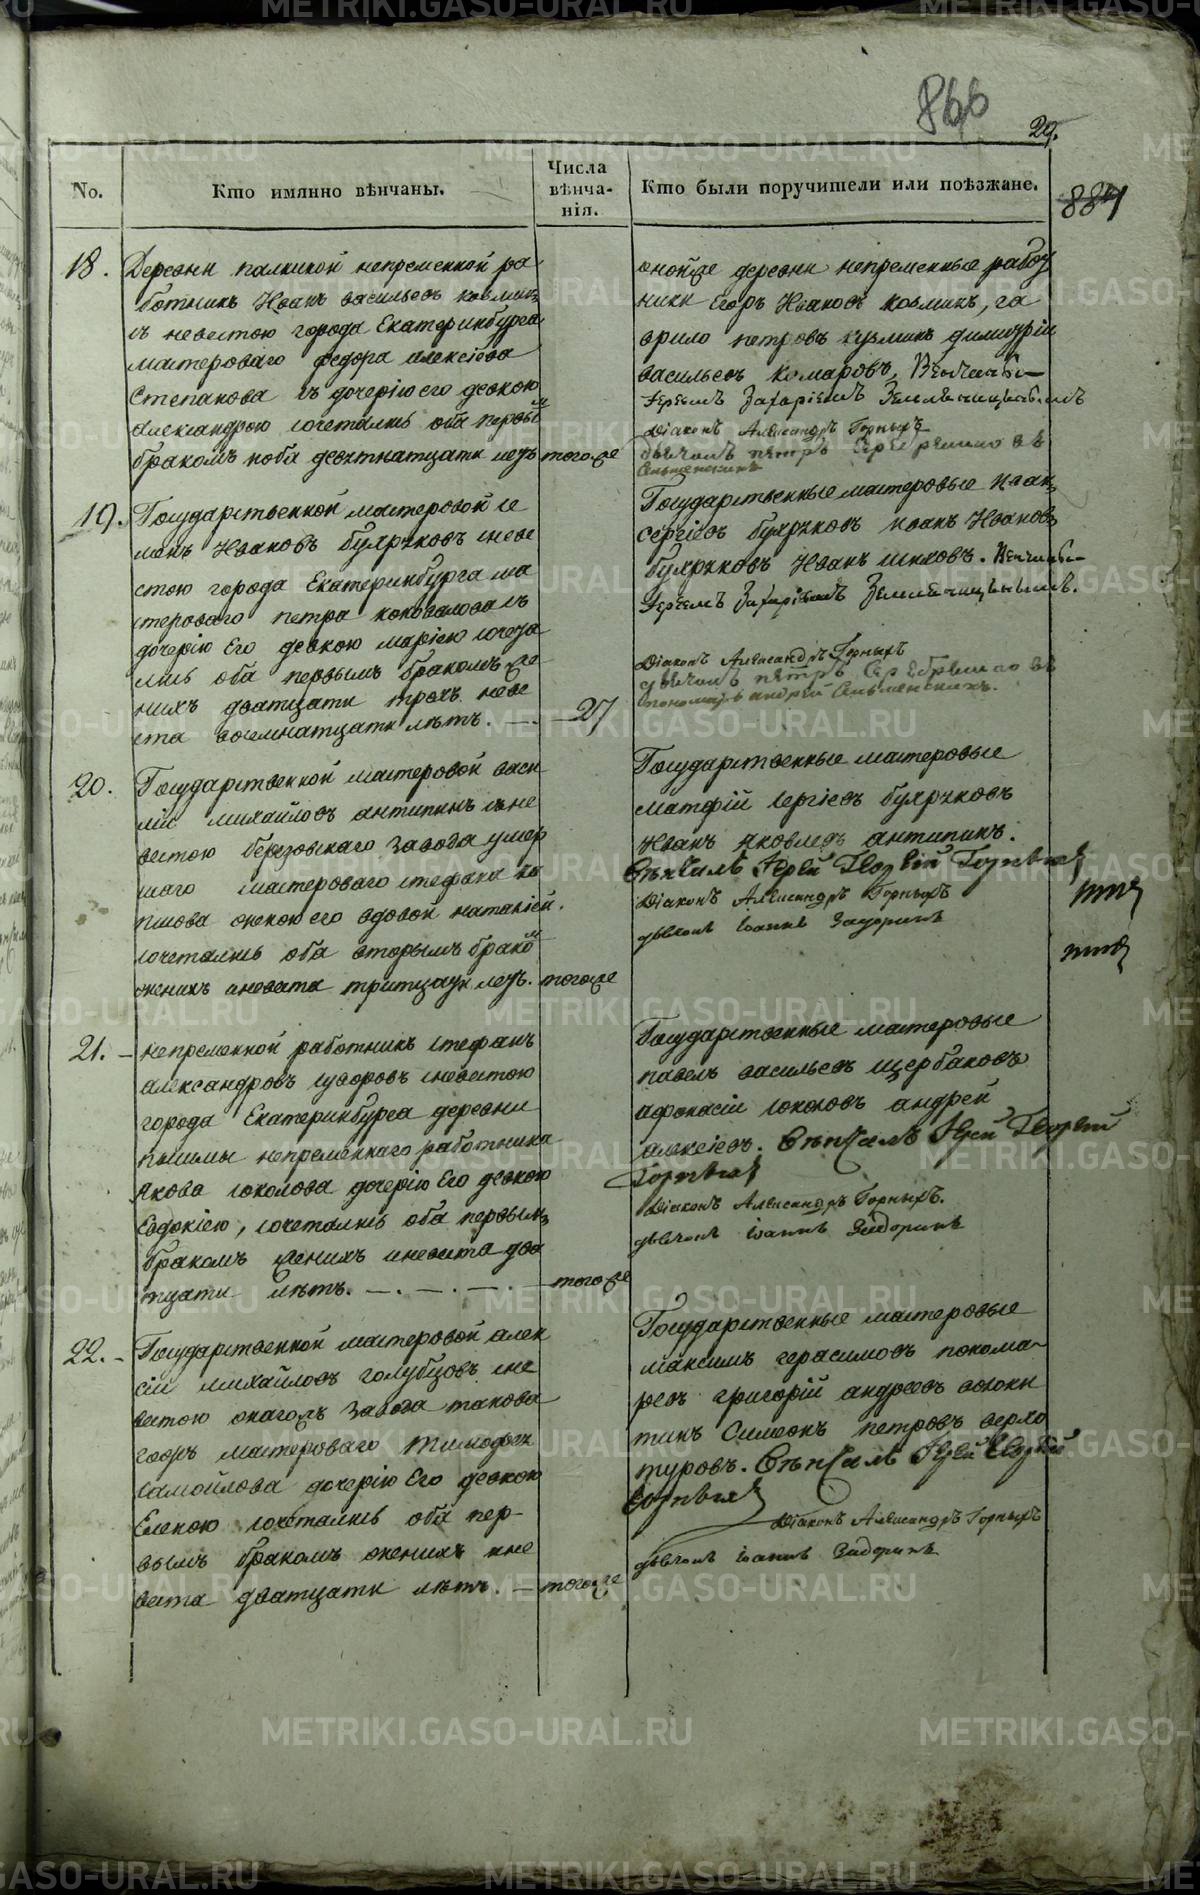 866
29.
884
No.
Кто имянно вѣнчаны.
Числа
вѣнча-
нія.
Кто были поручители или поѣзжане.
18. Деревни палкиной непременной ра
ботникъ Иванъ васильевъ козминъ
съ невестою города Екатеринбурга
мастероваго федора алексіева
Степанова съ дочерію его девкою
александрою сочетались оба первымъ
бракомъ и оба девятнатцати летъ
тогоже
оной же деревни непременные работ
ники Егоръ Ивановъ козминъ, га
врило петровъ кузминъ димитрій
васильевъ комаровъ. Венчаны
Іереемъ Захаріемъ Земляницынымъ
Діаконъ Александръ Горныхъ
дьячокъ петръ Серебрениковъ
19. Государственной мастеровой се
менъ Ивановъ буярковъ с неве
стою города Екатеринбурга ма
стероваго петра коковалова съ
дочерію Его девкою маріею сочета
лись оба первымъ бракомъ же
нихъ дватцати трехъ неве
ста восемнатцати лѣтъ.
27
Государственные мастеровые иванъ
сергіевъ буярковъ иванъ Ивановъ
буярковъ Иванъ шиховъ. Венчаны
Іереемъ Захаріемъ Земляницынымъ.
Діаконъ Александръ Горныхъ
дьячокъ петръ Серебрениковъ
пономарь андрей
20. Государственной мастеровой васи
лій михайловъ антипинъ с не
вестою березовскаго завода умер
шаго мастероваго стефана ка
пшова женою его вдовой наталіей.
сочетались оба вторымъ бракомъ
женихъ и невеста тритцати летъ.
тогоже
Государственные мастеровые
матфій сергіевъ буярковъ
Иванъ яковлевъ антипинъ.
Вѣнчалъ Іерей Георгій Горныхъ
Діаконъ Александръ Горныхъ
дьячокъ Іоаннъ Задоринъ
21. непременной работникъ стефанъ
александровъ суворовъ с невестою
города Екатеринбурга деревни
пышмы непременнаго работника
якова соколова дочерію Его девкою
Евдокіею, сочетались оба первымъ
бракомъ женихъ и невеста два
тцати лѣтъ.
тогоже
Государственные мастеровые
павелъ васильевъ щербаковъ
афонасіи соколовъ андрей
алексіевъ. Вѣнчалъ Іерей Георгій
Горныхъ
Діаконъ Александръ Горныхъ.
дьячокъ Іоаннъ Задоринъ
22. Государственной мастеровой алек
сій михайловъ голубцовъ с не
вестою онагожъ завода такова
гожъ мастероваго тимофея
самойлова дочерію Его девкою
Еленою сочетались оба пер-
вымъ бракомъ женихъ и не
веста дватцати лѣтъ.
тогоже
Государственные мастеровые
максимъ герасимовъ понома-
ревъ григорій андреевъ
симеонъ петровъ верхо
туровъ. Вѣнчалъ Іерей Георгій
Горныхъ
Діаконъ Александръ Горныхъ
дьячокъ Іоаннъ Задоринъ
METRIKI.GASO-URAL.RU